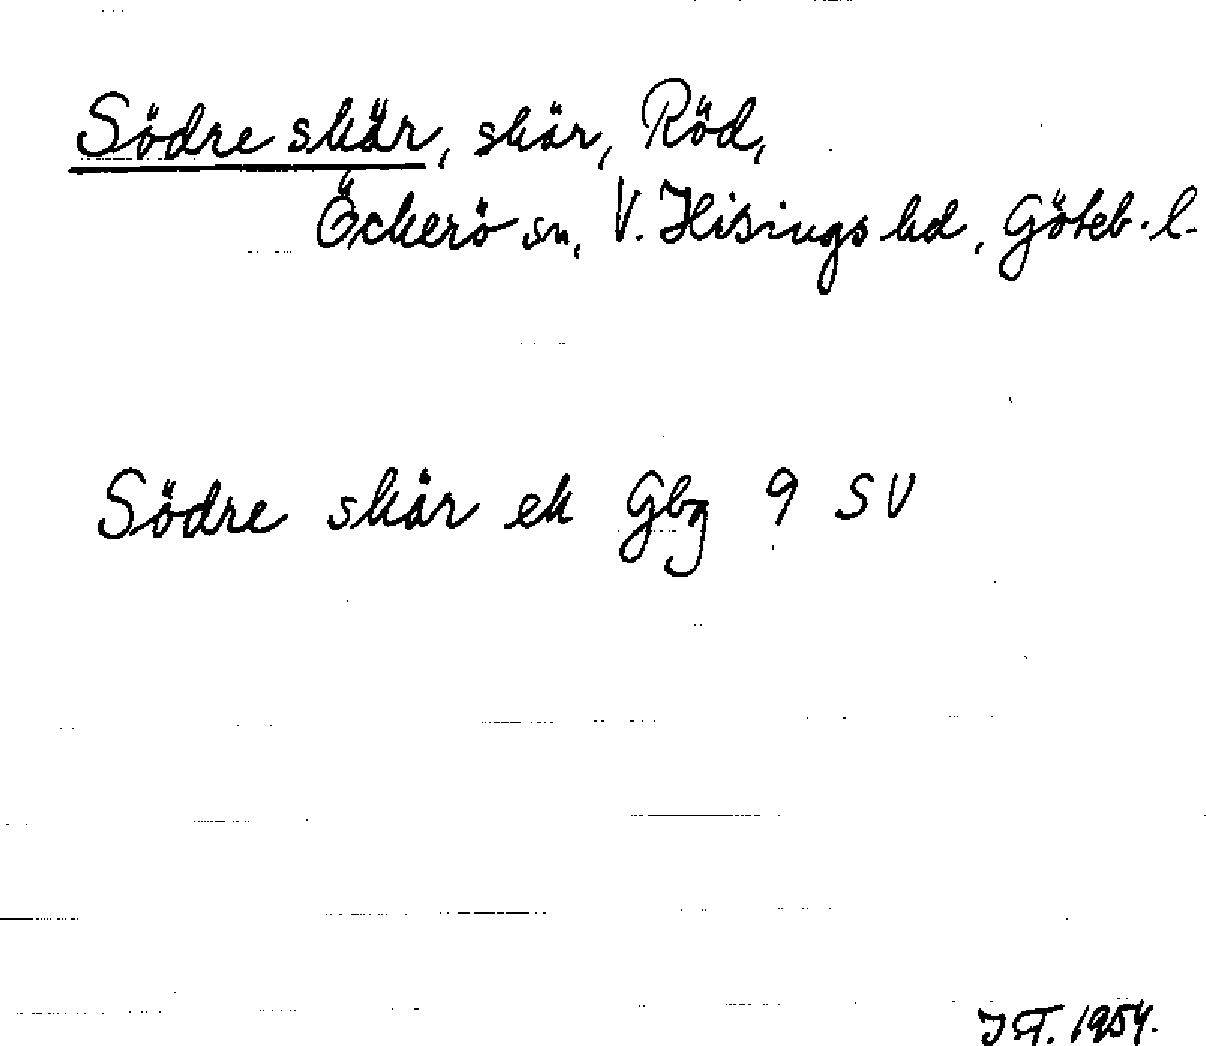 Södre skär, skär, Röd,
Öckerö sn, V. Hisings hd, Göteb. l.
Södre skär ek Gbg 9 SV
1954.